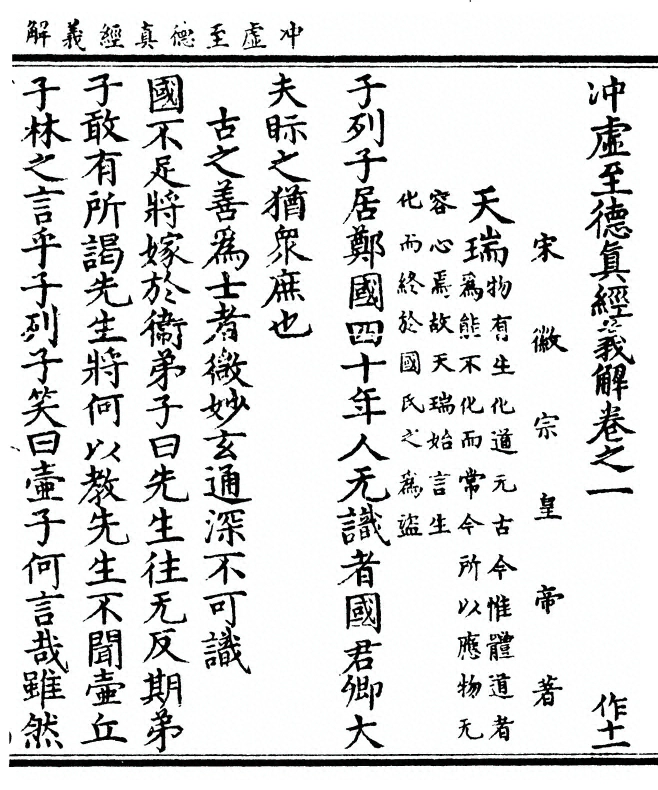 冲虛至德真經義解
冲虛至德真經義解卷之一 作十一
宋徽宗皇帝著
天瑞物有生化道无古今惟體道者
為能不化而常今所以應物无
容心焉故天瑞始言生
化而終於國氏之為盜
子列子居鄭國四十年人无識者國君卿大
夫眎之猶衆庶也
古之善爲士者微妙玄通深不可識
國不足將嫁於衞弟子曰先生往无反期弟
子敢有所謁先生將何以教先生不聞壷丘
子林之言乎子列子笑曰壷子何言哉雖然